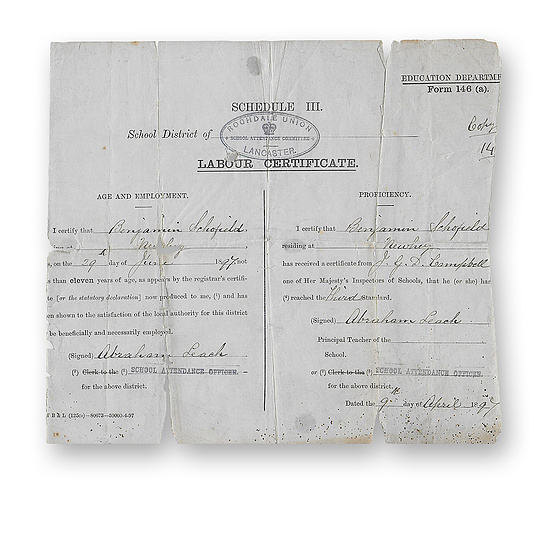 EDUCATION DEPARTME
Form 146 (a).
SCHEDULE III.
Copy
School District of
ROCHDALE UNION
SCHOOL ATTENDANCE COMMITTEE
LANCASTER.
14
LABOUR CERTIFICATE.
AGE AND EMPLOYMENT.
I certify that Benjamin Schofield
Newhey
, on the 29th day of June 1897, not
s than eleven years of age, as appears by the registrar's certifi-
te [or the statutory declaration] now produced to me, (¹) and has
en shown to the satisfaction of the local authority for this district
be beneficially and necessarily employed.
(Signed) Abraham Leach
(²) Clerk to the (³) SCHOOL ATTENDANCE OFFICER.
for the above district.
PROFICIENCY.
I certify that Benjamin Schofield
residing at Newhey
has received a certificate from J. G. D. Campbell
one of Her Majesty's Inspectors of Schools, that he (or she) has
(¹) reached the Third Standard.
(Signed) Abraham Leach
Principal Teacher of the
School.
or (²) Clerk to the (³) SCHOOL ATTENDANCE OFFICER.
for the above district.
Dated the 9th day of April 1897